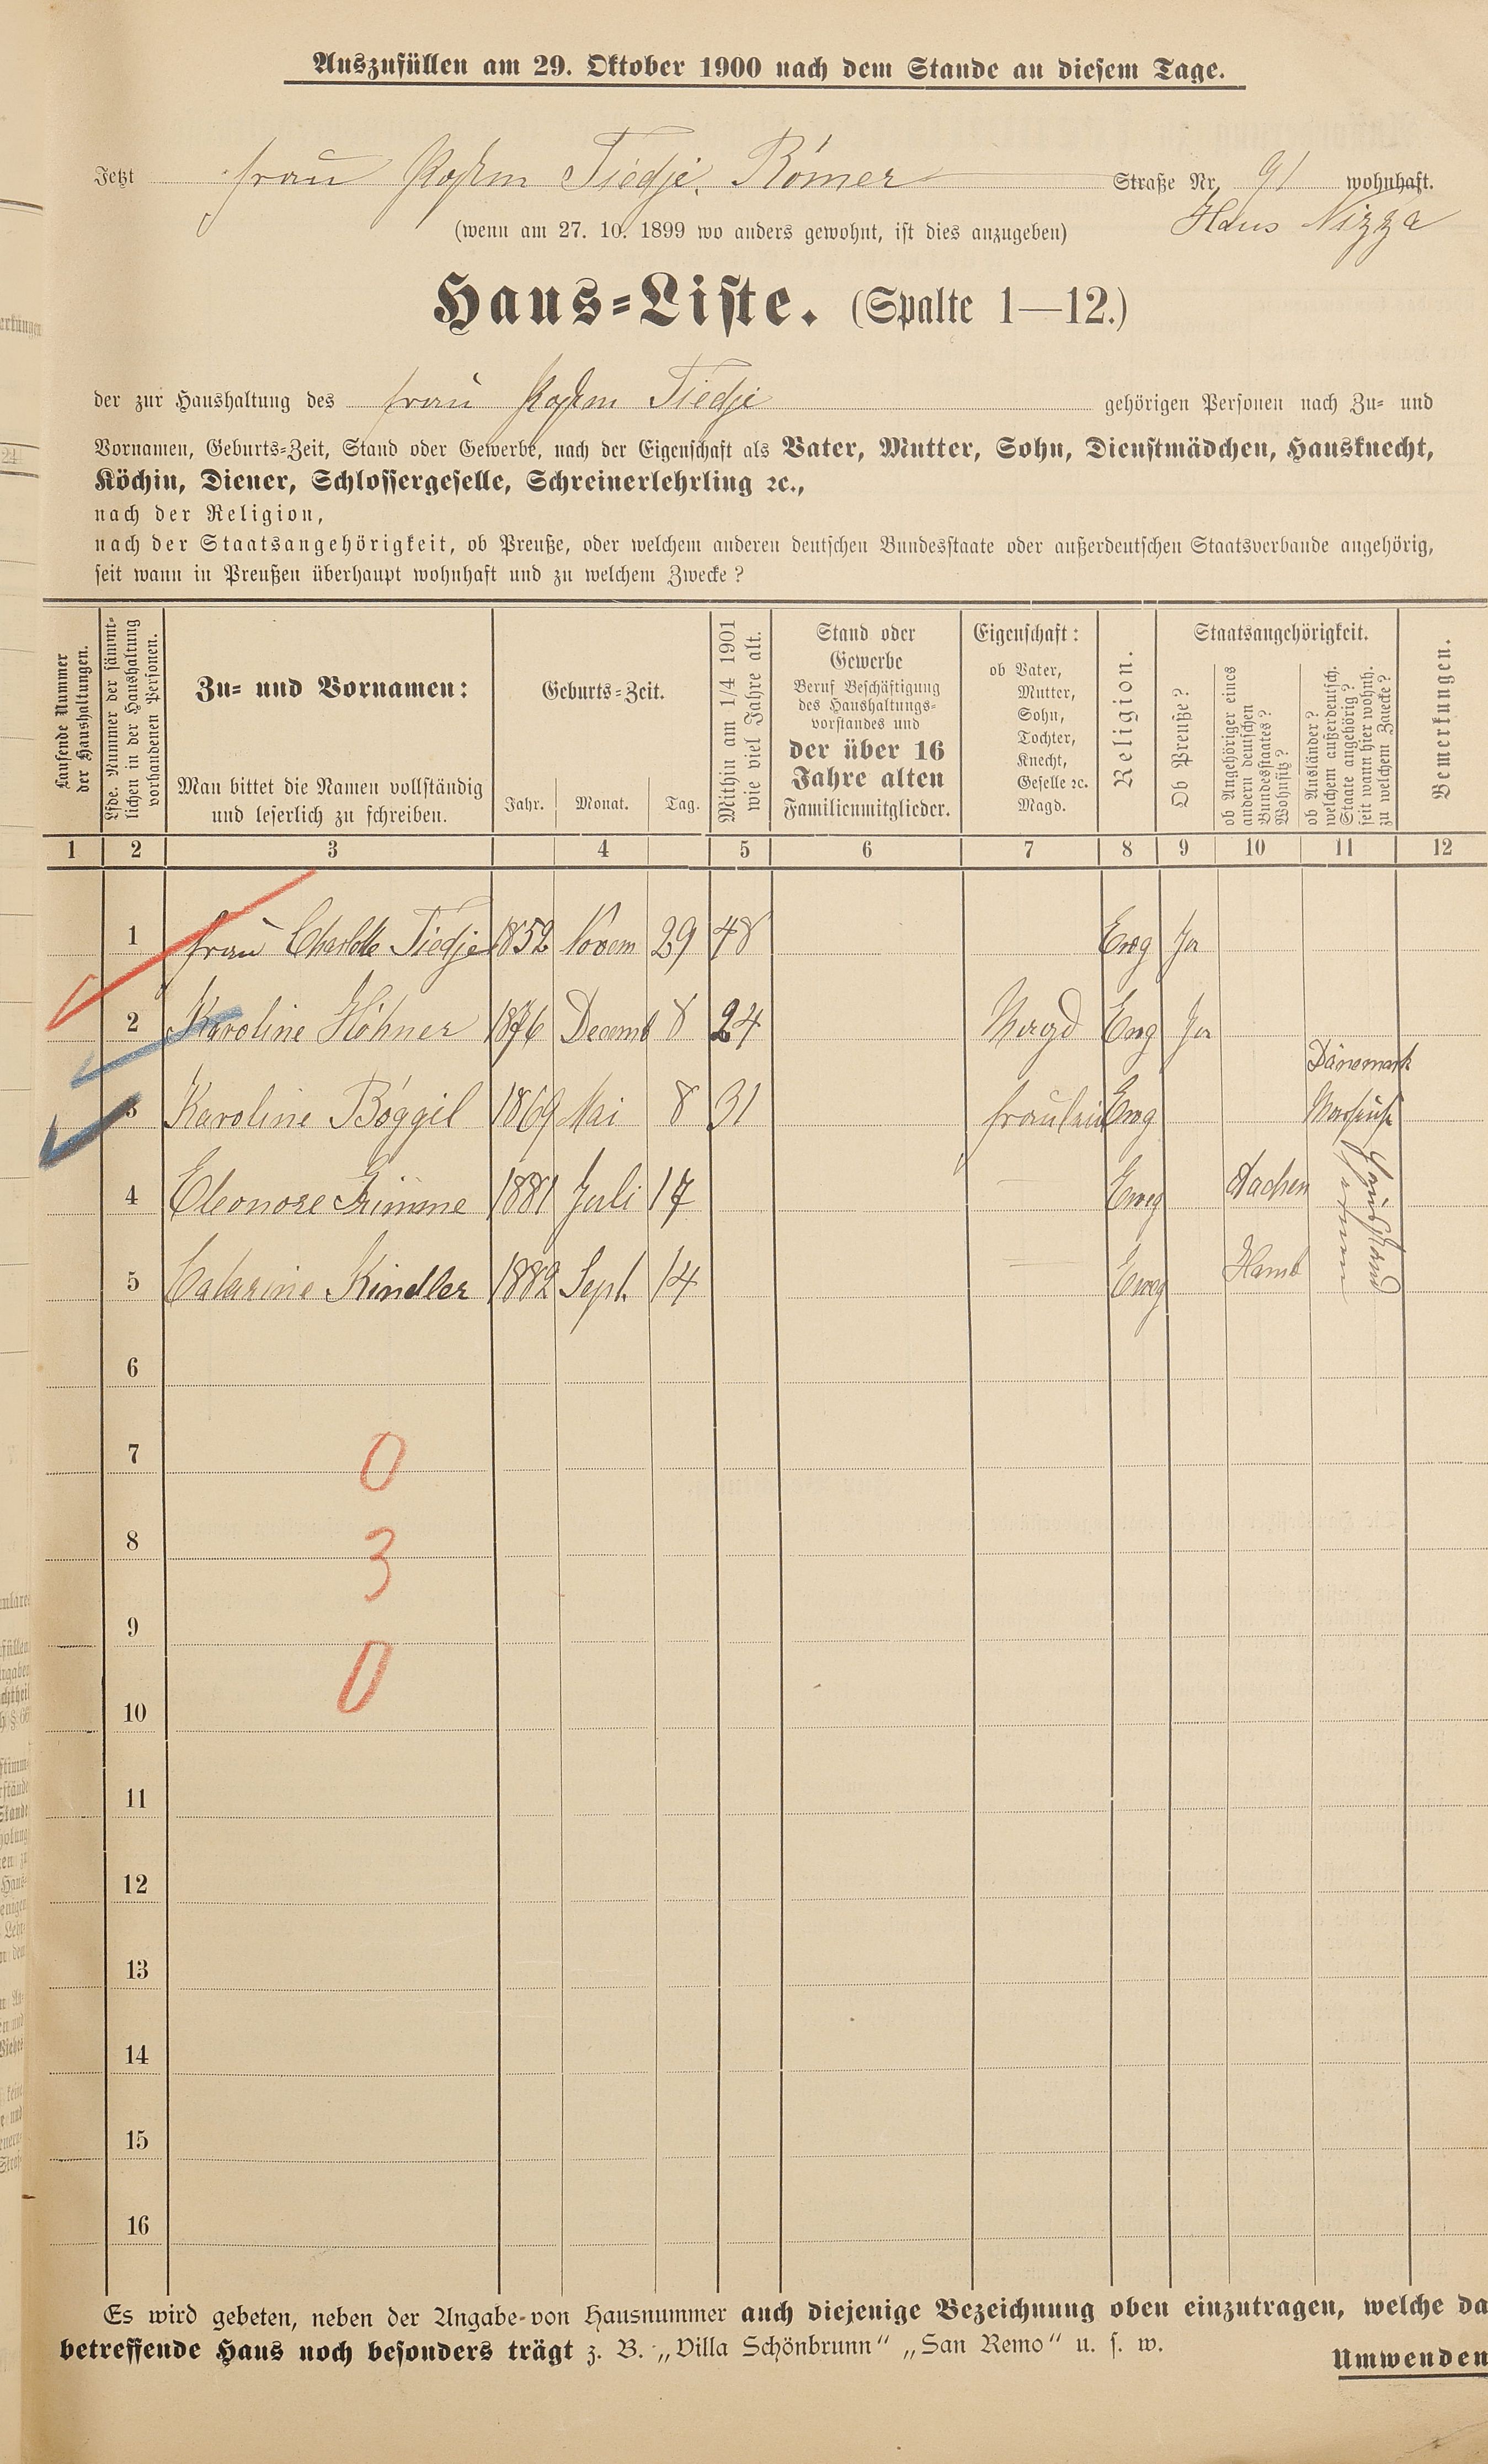 Auszufüllen am 29. Oktober 1900 nach dem Stande an diesem Tage.
Jetzt Frau Tiedje. Römer Straße Nr. 91 wohnhaft.
(wenn am 27. 10. 1899 wo anders gewohnt, ist dies anzugeben) Haus Nizza
Haus-Liste. (Spalte 1—12.)
der zur Haushaltung des Frau Tiedje gehörigen Personen nach Zu- und
Vornamen, Geburts-Zeit, Stand oder Gewerbe, nach der Eigenschaft als Vater, Mutter, Sohn, Dienstmädchen, Hausknecht,
Köchin, Diener, Schlossergeselle, Schreinerlehrling ꝛc.,
nach der Religion,
nach der Staatsangehörigkeit, ob Preuße, oder welchem anderen deutschen Bundesstaate oder außerdeutschen Staatsverbande angehörig,
seit wann in Preußen überhaupt wohnhaft und zu welchem Zwecke?
Laufende Nummer
der Haushaltungen.
Lfde. Nummer der sämmt-
lichen in der Haushaltung
vorhandenen Personen.
Zu- und Vornamen:
Man bittet die Namen vollständig
und leserlich zu schreiben.
Geburts-Zeit.
Jahr. Monat. Tag.
Mithin am 1/4 1901
wie viel Jahre alt.
Stand oder
Gewerbe
Beruf Beschäftigung
des Haushaltungs-
vorstandes und
der über 16
Jahre alten
Familienmitglieder.
Eigenschaft:
ob Vater,
Mutter,
Sohn,
Tochter,
Knecht,
Geselle ꝛc.
Magd.
Religion.
Staatsangehörigkeit.
Ob Preuße?
ob Angehöriger eines
andern deutschen
Bundesstaates?
Wohnsitz?
ob Ausländer?
welchem außerdeutsch.
Staate angehörig?
seit wann hier wohnh.
zu welchem Zwecke?
Bemerkungen.
1 2 3 4 5 6 7 8 9 10 11 12
1 Frau Charlotte Tiedje 1852 Novem 29 48 Evg Ja
2 Karoline Höhner 1876 Decemb 8 24 Magd Evg Ja
Dänemark
3 Karoline Böggil 1869 Mai 8 31 Fräulein Evg
4 Eleonore Grimme 1881 Juli 17 Evg Aachen
5 Catarine Kindler 1882 Sept. 14 Evg Hamb
6
7 0
8 3
9
10 0
11
12
13
14
15
16
Es wird gebeten, neben der Angabe von Hausnummer auch diejenige Bezeichnung oben einzutragen, welche da
betreffende Haus noch besonders trägt z. B. „Villa Schönbrunn“ „San Remo“ u. s. w.
Umwenden